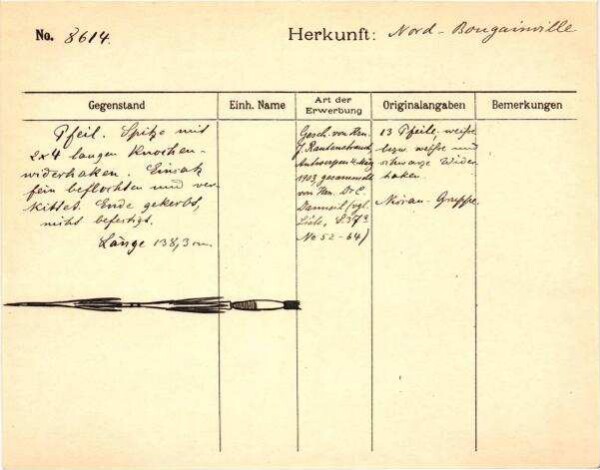 No. 8614.
Herkunft: Nord-Bougainville
Gegenstand
Einh. Name
Art der Erwerbung
Originalangaben
Bemerkungen
Pfeil. Spitze mit
2x4 langen Knochen-
widerhaken. Einsatz
fein beflochten und ver
kittet. Ende gekerbt,
nicht befestigt.
Länge 138,3 cm.
Gesch. von Hrn.
J. Rautenstrauch,
Antwerpen
1913 gesammelt
von Hrn. Dr
vgl.
Liste, S.
No 52-64)
13 Pfeile, weiße
bezw weiße und
schwarze Wider
haken.
Gruppe.